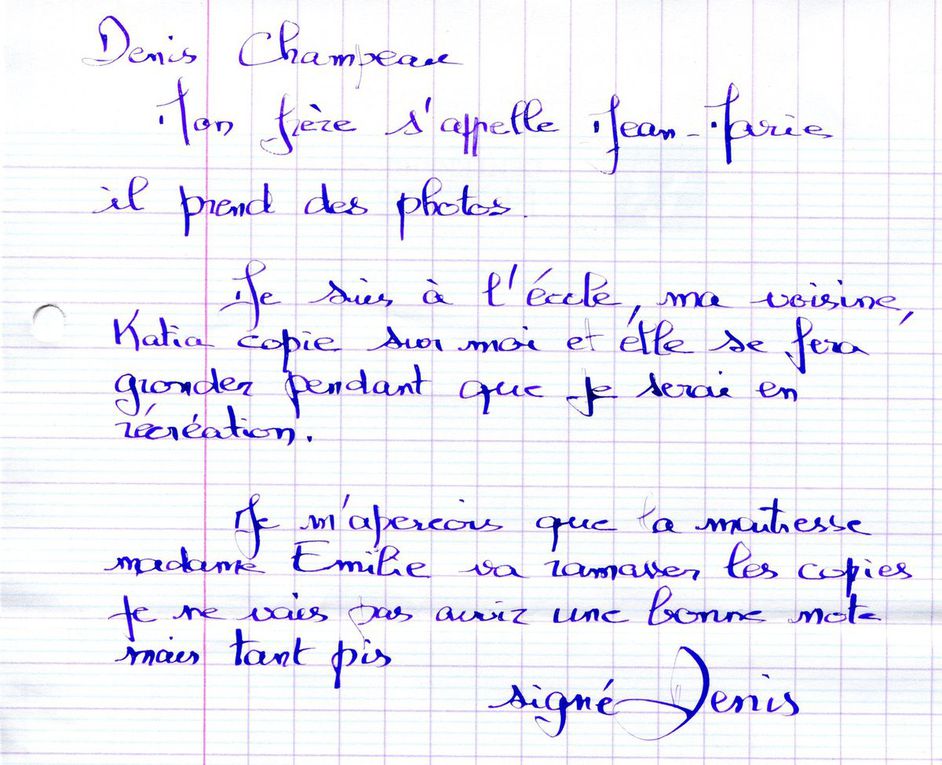 Denis Champeau
Mon frère s'appelle Jean-Marie
il prend des photos.
Je suis à l'école, ma voisine,
Katia copie sur moi et elle se fera
gronder pendant que je serai en
récréation.
Je m'aperçois que la maitresse
madame Emilie va ramasser les copies
je ne vais pas avoir une bonne note
mais tant pis
signé Denis